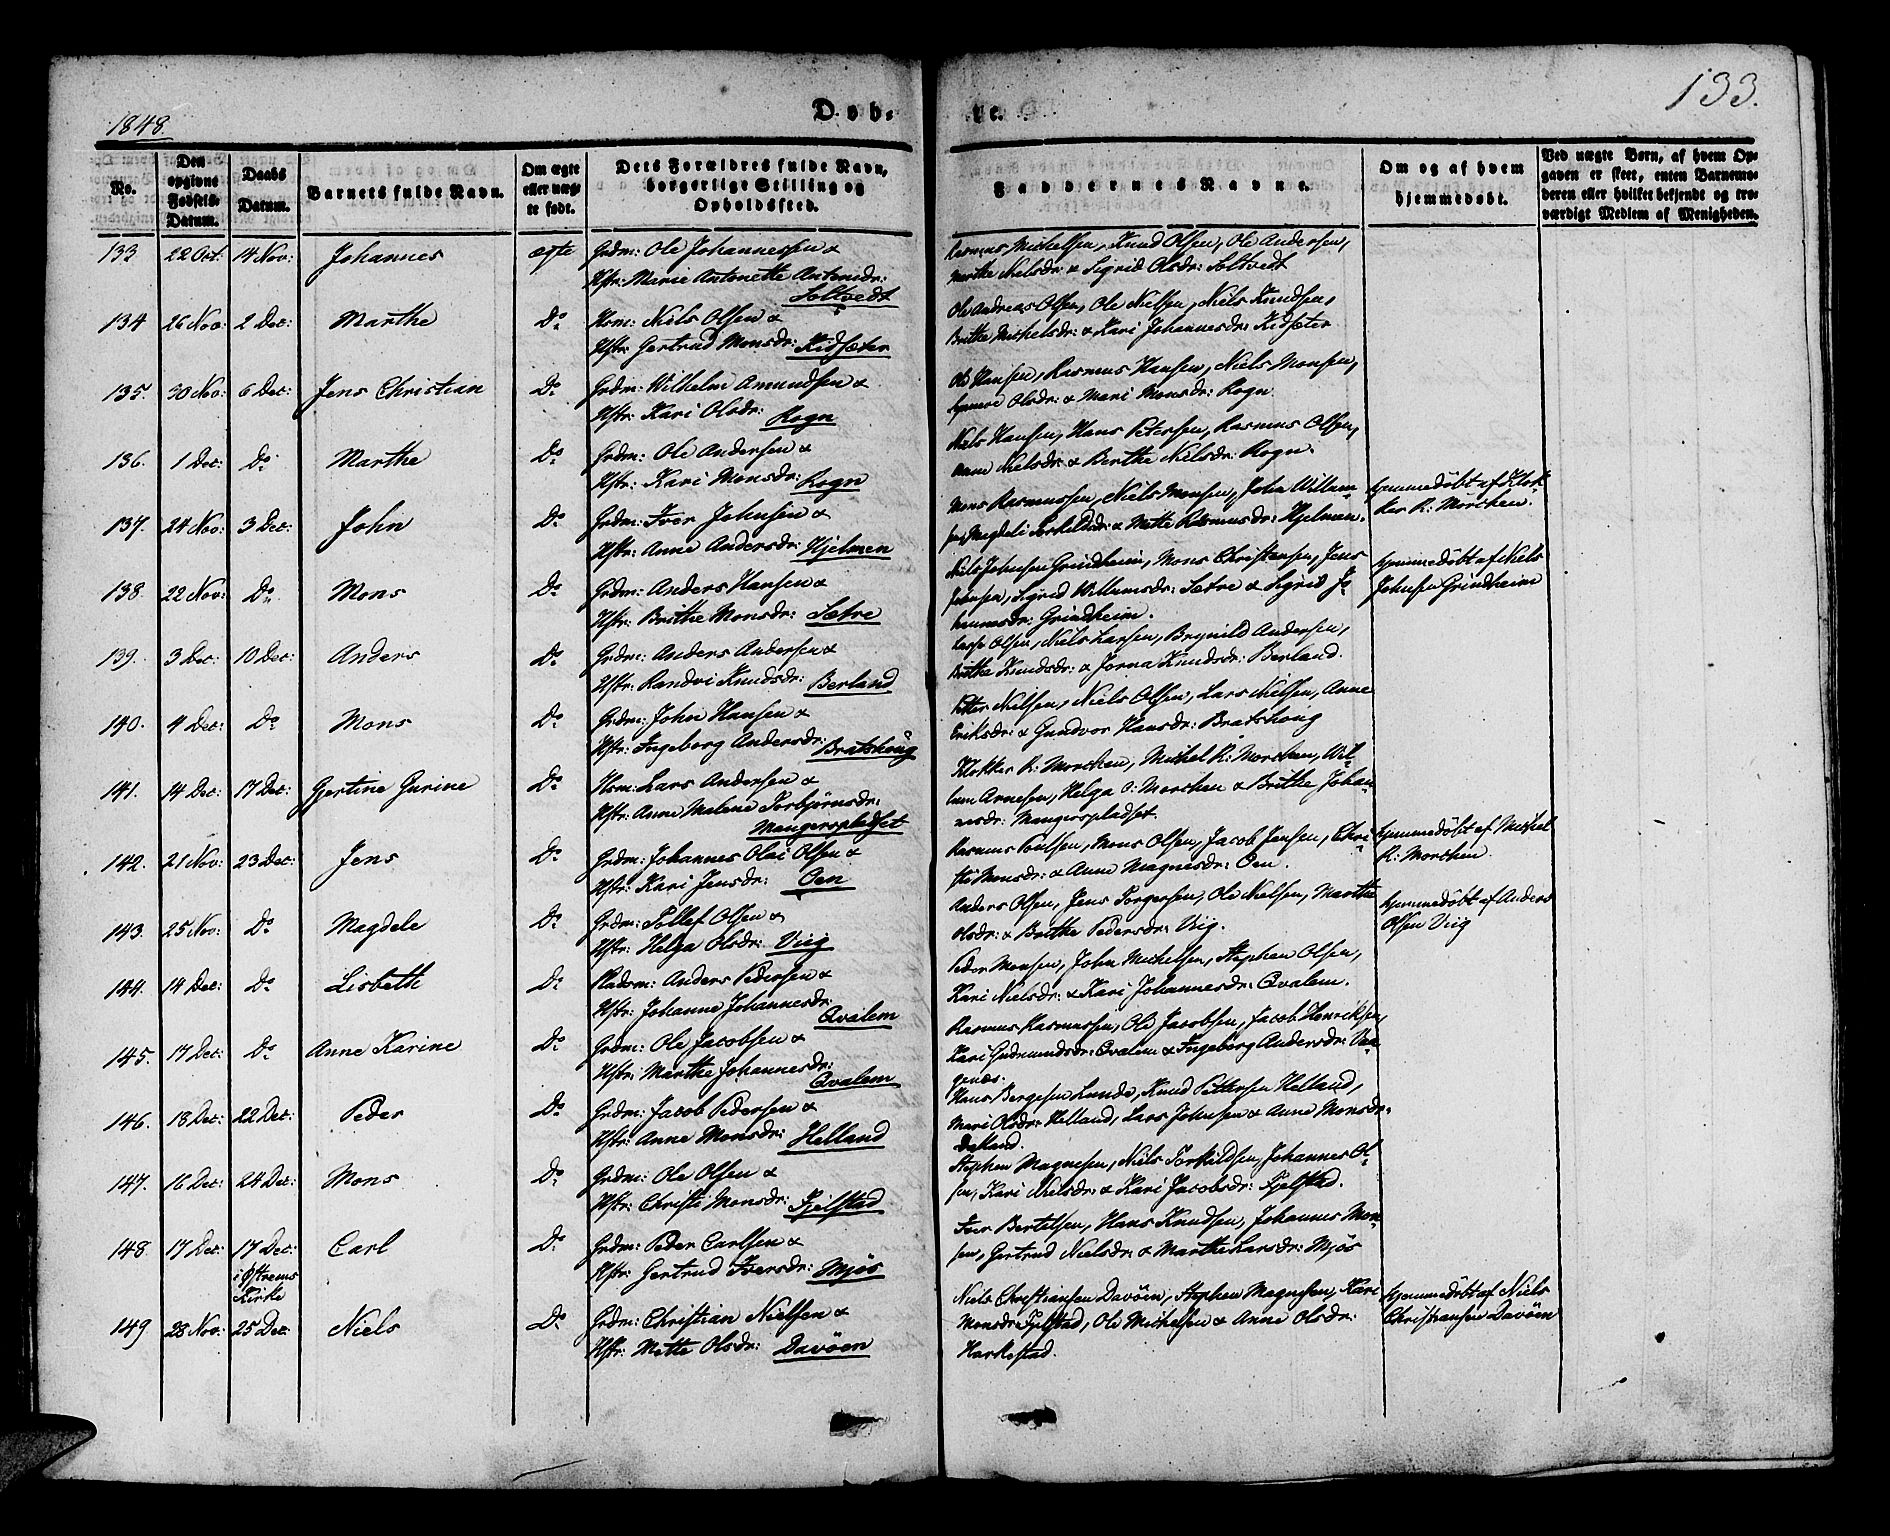 1848.
Døb-
te.
133.
No.
Den opgivne Fødsels-Datum.
Daabs Datum.
Barnets fulde Navn.
Om ægte eller uægte født.
Dets Forældres fulde Navn, borgerlige Stilling og Opholdssted.
Faddernes Navne.
Om og af hvem hjemmedøbt.
Ved uægte Børn, af hvem Opgaven er skeet, enten Barnemoderen eller hvilket bekjendt og troværdigt Medlem af Menigheden.
133 22 Oct: 14 Nov: Johannes ægte Grdm: Ole Johannessen &
Hstr: Marie Antonette Antonsdr:
Soltvedt
Rasmus Michelsen, Knud Olsen, Ole Andersen,
Marthe Nielsdr: & Sigrid Olsdr: Soltvedt
134 26 Nov: 2 Dec: Marthe Do Hsm: Niels Olsen &
Hstr: Gertrud Monsdr: Kidsæter
Ole Andreas Olsen, Ole Nielsen, Niels Knudsen,
Brithe Michelsdr: & Kari Johannesdr: Kidsæter
135. 30 Nov: 6 Dec: Jens Christian Do Grdm: Wilhelm Amundsen &
Hstr: Kari Olsdr: Rogn
Ole Hansen, Rasmus Hansen, Niels Monsen,
Olsdr: & Mari Monsdr: Rogn.
136. 1 Dec: Do Marthe Do Grdm: Ole Andersen &
Hstr: Kari Monsdr: Rogn
Niels Hansen, Hans Petersen, Rasmus Olsen,
Anne Nielsdr & Berthe Nielsdr: Rogn.
137. 24 Nov: 3 Dec: John Do Grdm: Iver Johnsen &
Hstr: Anne Andersdr: Hjelmen
Mons Rasmussen, Niels Monsen, John Willum-
sen, Magdeli Torkildsdr: & Mette Rasmusdr: Hjelmen.
hjemmedøbt af Klok-
ker R: Morchen.
138. 22 Nov: Do Mons Do Grdm: Anders Hansen &
Hstr: Brithe Monsdr: Sætre
Niels Johnsen Grindheim, Mons Christensen, Jens
Johnsen, Sigrid Willumsdr: Sætre & Sigrid Jo-
hannesdr: Grindheim.
hjemmedøbt af Niels
Johnsen Grindheim
139. 3 Dec: 10 Dec: Anders Do Grdm: Anders Andersen &
Hstr: Randvi Knudsdr: Berland
Lasse Olsen, Niels Larsen, Brynild Andersen,
Brithe Knudsdr: & Jorna Knudsdr: Berland.
140. 4 Dec: Do Mons Do Grdm: John Hansen &
Hstr: Ingeborg Andersdr: Bratshoug
Petter Nielsen, Niels Olsen, Lars Nielsen, Anne
Eriksdr: & Gundvor Hansdr: Bratshoug
141. 14 Dec: 17 Dec: Gjertine Gurine Do Hsm: Lars Andersen &
Hstr: Anne Malene Torbjørnsdr:
Mangerspladset
Klokker R: Morchen, Michel R: Morchen, Wil-
lum Arnesen, Helga O: Morchen & Brithe Johan-
nesdr: Mangerspladset.
142. 21 Nov: 23 Dec: Jens Do Grdm: Johannes Olai Olsen &
Hstr: Kari Jensdr: Øen
Rasmus Poulsen, Mons Olsen, Jacob Jensen, Chri-
sti Monsdr: & Anne Magnesdr: Øen.
hjemmedøbt af Michel
R: Morchen.
143. 25 Nov: Do Magdele Do Grdm: Tollef Olsen &
Hstr: Helga Olsdr: Viig
Anders Olsen, Jens Torgersen, Ole Nielsen, Marthe
Olsdr: & Brithe Pedersdr: Viig.
hjemmedøbt af Anders
Olsen Viig
144. 14 Dec: Do Lisbeth Do Pladsm: Anders Pedersen &
Hstr: Johanne Johannesdr:
Qvalem
Peder Monsen, John Michelsen, Stephen Olsen,
Kari Nielsdr: & Kari Johannesdr: Qvalem.
145. 17 Dec: Do Anne Karine Do Grdm: Ole Jacobsen &
Hstr: Marthe Johannesdr:
Qvalem
Rasmus Rasmussen, Ole Jacobsen, Jacob Henriksen,
Kari Gudmundsdr: Qvalem & Ingeborg Andersdr: Vaa-
genæs.
146. 18 Dec: 22 Dec: Peder Do Grdm: Jacob Pedersen &
Hstr: Anne Monsdr: Helland
Hans Bergesen Lunde, Knud Pettersen Helland,
Mari Olsdr: Helland, Lars Johnsen & Anne Monsdr:
Dalland.
147. 16 Dec: 24 Dec: Mons Do Grdm: Ole Olsen &
Hstr: Christi Monsdr: Fjelstad
Stephen Magnesen, Niels Torkildsen, Johannes Ol-
sen, Kari Nielsdr: & Kari Jacobsdr: Fjelstad.
148. 17 Dec: 17 Dec: i Østrems Kirke Carl Do Grdm: Peder Carlsen &
Hstr: Gertrud Iversdr: Mjøs
Iver Bertelsen, Hans Knudsen, Johannes Mon-
sen, Gertrud Nielsdr: & Marthe Larsdr: Mjøs
149 28 Nov: 25 Dec: Niels Do Grdm: Christian Nielsen &
Hstr: Mette Olsdr: Davøen
Niels Christiansen Davøen, Stephen Magnesen, Kari
Monsdr: Fjelstad, Ole Michelsen & Anne Olsdr:
Harkestad.
hjemmedøbt af Niels
Christiansen Davøen